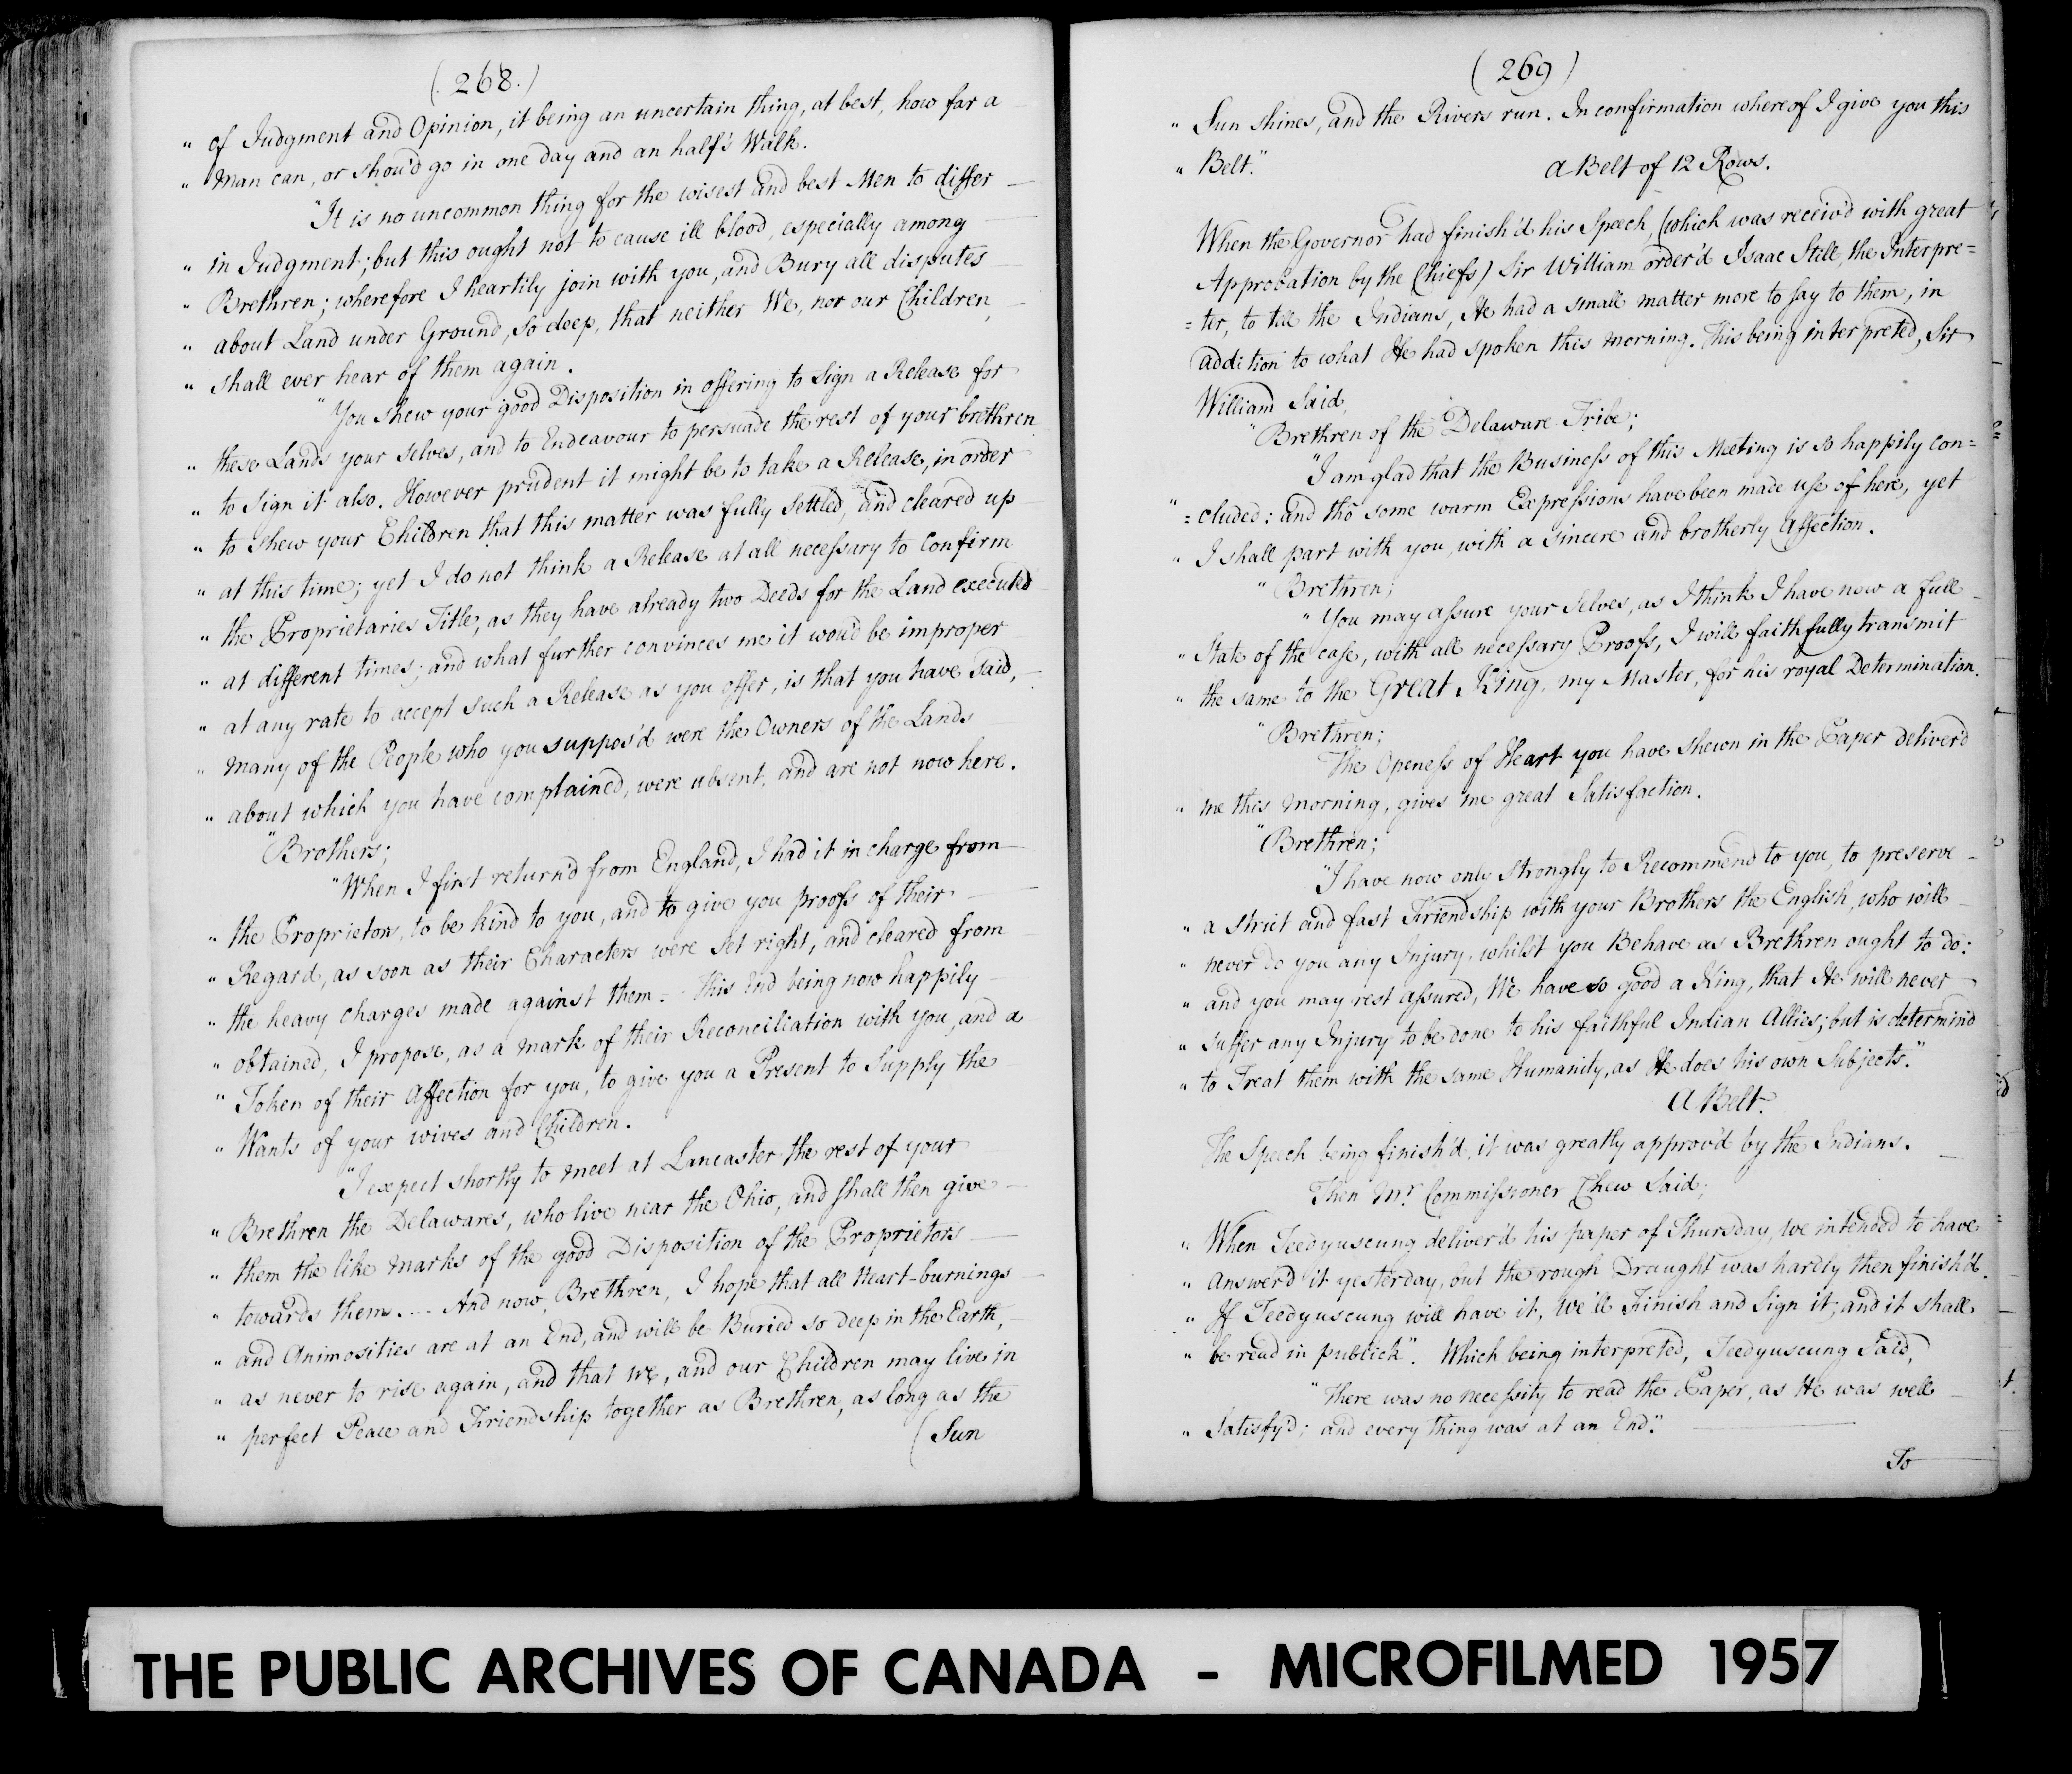 (268.)
" of Judgment and Opinion, it being an uncertain thing, at best, how far a
" Man can, or shou'd go in one day and an half's Walk.
"It is no uncommon thing for the wisest and best Men to differ
" in Judgment; but this ought not to cause ill blood, especially among
" Brethren; wherefore I heartily join with you, and Bury all disputes
" about Land under Ground, so deep, that neither We, nor our Children,
" shall ever hear of them again.
"You shew your good Disposition in offering to Sign a Release for
" these Lands your selves, and to Endeavour to persuade the rest of your brethren
" to Sign it also. However prudent it might be to take a Release, in order
" to shew your Children that this matter was fully settled, and cleared up
" at this time; yet I do not think a Release at all necessary to Confirm
" the Proprietaries Title, as they have already two Deeds for the Land executed
" at different times; and what further convinces me it wou'd be improper
" at any rate to accept such a Release as you offer, is that you have said,
" Many of the People who you suppos'd were the Owners of the Lands
" about which you have complained, were absent, and are not now here.
"Brothers;
"When I first return'd from England, I had it in charge from
" the Proprietors, to be kind to you, and to give you proofs of their
" Regard, as soon as their Characters were set right, and cleared from
" the heavy charges made against them. - This End being now happily
" obtained, I propose, as a mark of their Reconciliation with you, and a
" Token of their Affection for you, to give you a Present to Supply the
" Wants of your wives and Children.
"I expect shortly to meet at Lancaster the rest of your
" Brethren the Delawares, who live near the Ohio, and shall then give
" them the like Marks of the good Disposition of the Proprietors
" towards them. -- And now, Brethren, I hope that all Heart-burnings
" and Animosities are at an End, and will be Buried so deep in the Earth,
" as never to rise again, and that We, and our Children may live in
" perfect Peace and Friendship together as Brethren, as long as the
(Sun
(269)
" Sun shines, and the Rivers run. In confirmation whereof I give you this
" Belt." A Belt of 12 Rows.
When the Governor had finish'd his Speech, (which was receiv'd with great
Approbation by the Chiefs) Sir William order'd Isaac Still, the Interpre=
=ter, to tell the Indians, He had a small matter more to say to them, in
addition to what He had spoken this morning. This being interpreted, Sir
William Said,
"Brethren of the Delaware Tribe;
"I am glad that the Business of this Meeting is so happily con=
" =cluded: and tho' some warm Expressions have been made use of here, yet
" I shall part with you, with a sincere and brotherly Affection.
"Brethren;
"You may assure your selves, as I think I have now a full
" State of the case, with all necessary Proofs, I will faithfully transmit
" the same to the Great King, my Master, for his royal Determination.
"Brethren;
The Openess of Heart you have shewn in the Paper deliver'd
" me this Morning, gives me great Satisfaction.
"Brethren;
"I have now only strongly to Recommend to you, to preserve
" a strict and fast Friendship with your Brothers the English, who will
" never do you any Injury, whilst you Behave as Brethren ought to do:
" and you may rest assured, We have so good a King, that He will never
" suffer any Injury to be done to his faithful Indian Allies; but is determin'd
" to Treat them with the same Humanity, as He does his own Subjects."
A Belt.
The Speech being finish'd, it was greatly approv'd by the Indians.
Then Mr. Commissioner Chew Said;
" When Teedyuscung deliver'd his paper of Thursday, we intended to have
" answer'd it yesterday, but the rough Draught was hardly then finish'd.
" If Teedyuscung will have it, We'll Finish and Sign it; and it shall
" be read in publick". Which being interpreted, Teedyuscung Said,
"There was no necessity to read the Paper, as He was well
" Satisfy'd; and every thing was at an End."
To
THE PUBLIC ARCHIVES OF CANADA - MICROFILMED 1957